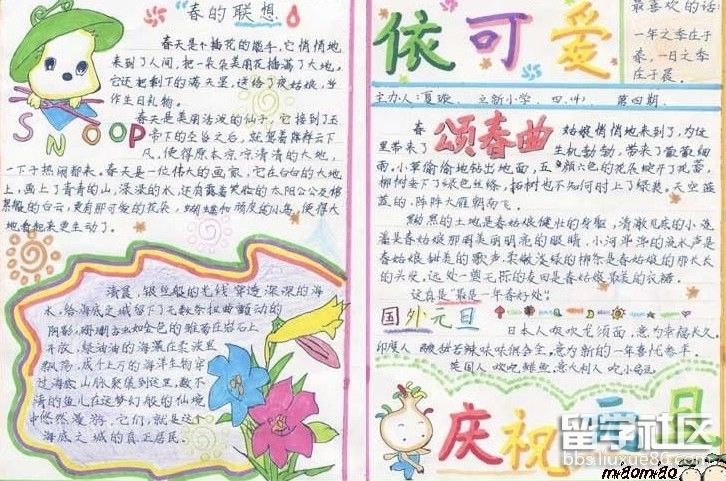 "春的联想
春天是个插花的能手,它悄悄地
来到了人间,把一朵朵美丽花插满了大地,
它还把剩下的满天星,送给了夜姑娘,当
作生日礼物。
春天是美丽活泼的仙子,它接到玉
帝下的圣旨之后,就
凡,使得原本凉凉清清的大地,
一下子热闹起来。春天是一位伟大的画家,它在白白的大地
上,画上了青青的山,绿绿的水,还有露着笑脸的太阳公公及
的白云,更有那可爱的花朵,蝴蝶和顽皮的小鸟,使得大
地看起来更生动了。
SNOOP
清晨,银丝般的光线穿透深深的海
水,给海底之城留下了无数条扭曲颤动的
阴影,珊瑚
开放,绿油油的海藻在柔波里
飘荡,成千上万的海洋生物穿
过海底山脉聚集到这里,数不
清的鱼儿在这梦幻般的仙境
中悠然漫游,它们,就是这个
海底之城的真正居民。
依可爱
最喜欢的话:
一年之季在于
春,一日之季
在于晨。
主办人:夏璇 立新小学 四、 第四期
颂春曲
春 姑娘悄悄地来到了,为这
里带来了 生机勃勃,带来了蒙蒙细
雨。小草偷偷地钻出地面,五颜六色的花朵绽开了花蕾,
柳树垂下了绿色丝绦,柘树也不知何时上了绿装。天空蓝
蓝的,阵阵大雁朝南飞。
黝黑的土地是春姑娘健壮的身躯,清澈见底的小池
塘是春姑娘那明亮的眼睛,小河哗哗的流水声是
春姑娘甜美的歌声,柔嫩淡绿的柳条是春姑娘的那长长
的头发,远处一望无际的麦田是春姑娘最美的衣裙。
这真是"最是一年春好处"。
国外元旦
日本人吃吃龙须面,意为福长久。
印度人 酸甜苦辣味味俱会全,意为新的一年喜忧参半。
英国人 吃 鲜鱼,意大利人 吃小扁豆。
庆祝元旦
留学社区
bbs.liuxue86.com
miaomiao